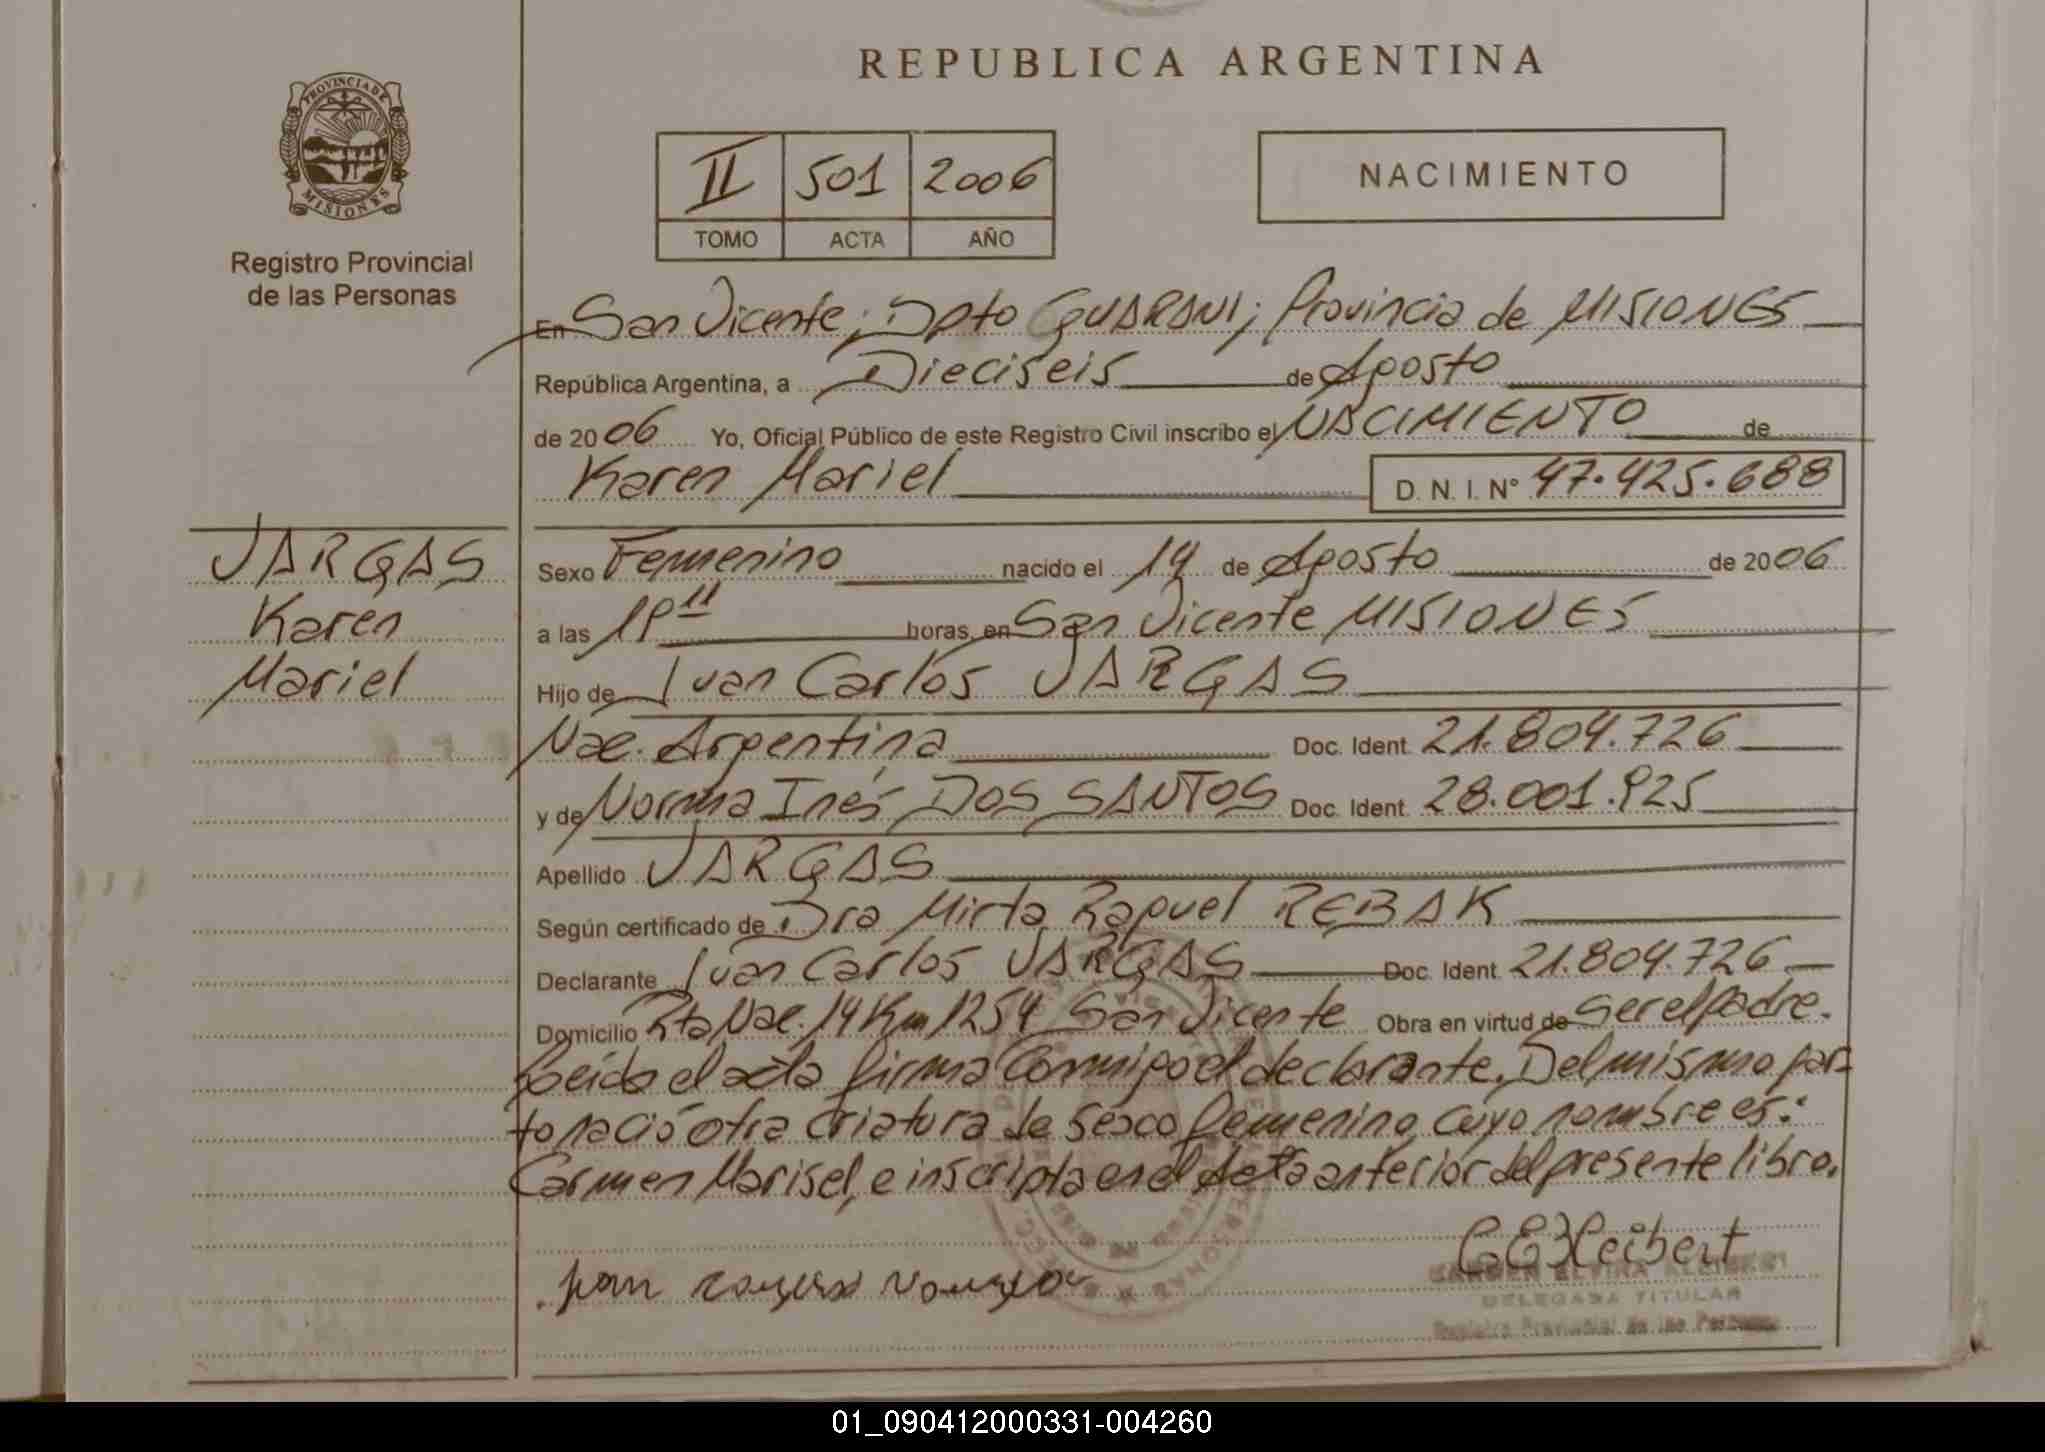 REPUBLICA ARGENTINA
PROVINCIA DE
MISIONES
Registro Provincial
de las Personas
II 501 2006
TOMO ACTA AÑO
NACIMIENTO
En San Vicente; Dpto GUARANI; Provincia de MISIONES
República Argentina, a Dieciseis de Agosto
de 2006 Yo, Oficial Público de este Registro Civil inscribo el NACIMIENTO de
Karen Mariel D. N. I. N° 47.425.688
VARGAS
Karen
Mariel
Sexo Femenino nacido el 14 de Agosto de 2006
a las horas, en San Vicente MISIONES
Hijo de Juan Carlos VARGAS
Nac. Argentina Doc. Ident. 21.804.726
y de Norma Inés DOS SANTOS Doc. Ident. 28.001.925
Apellido VARGAS
Según certificado de Dra Mirta Raquel REBAK
Declarante Juan Carlos VARGAS Doc. Ident. 21.804.726
Domicilio Rta Nac. 14 Km 1254 San Vicente Obra en virtud de ser el padre.
Leida el acta firma Conmigo el declarante. Del mismo par-
to nació otra criatura de sexo femenino cuyo nombre es:
Carmen Marisel, e inscripta en el Acta anterior del presente libro.
DELEGADA TITULAR
Registro Provincial de las Personas
01_090412000331-004260